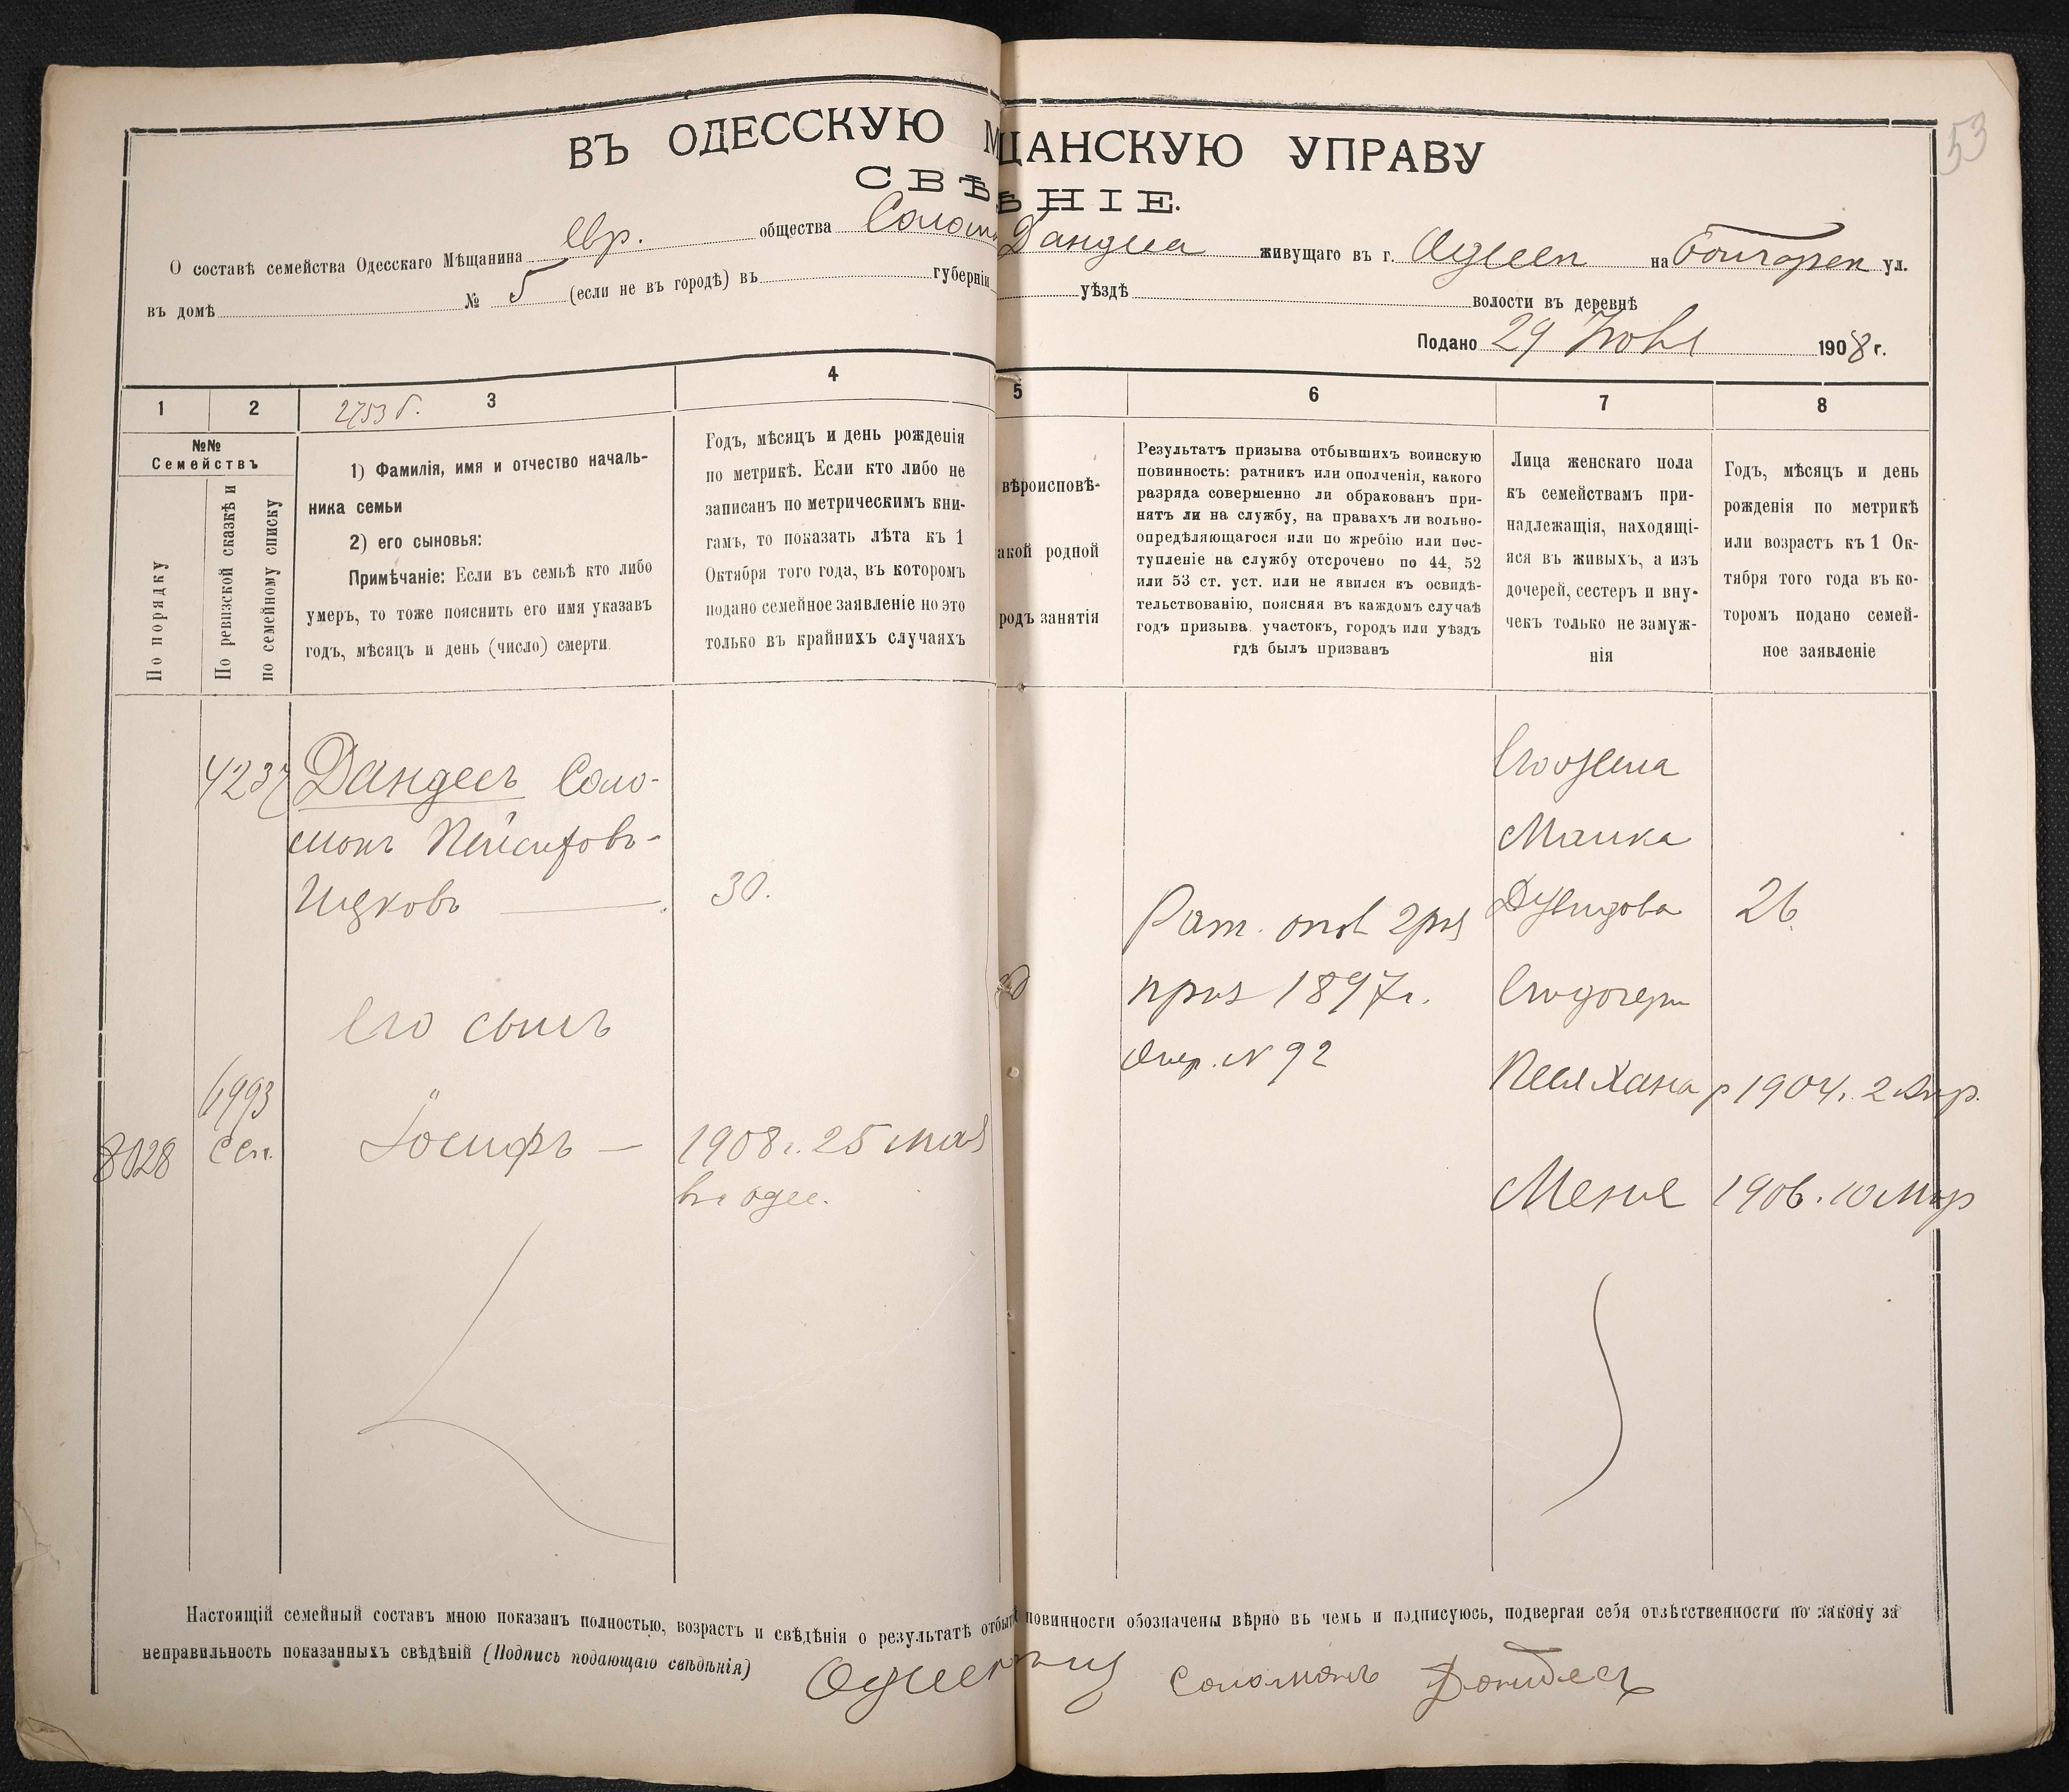 53
ВЪ ОДЕССКУЮ М ЩАНСКУЮ УПРАВУ
СВѢ ѢНІЕ.
О составѣ семейства Одесскаго Мѣщанина Евр. общества Солом Дандеса живущаго въ г. Одессѣ на ул.
въ домѣ № 5 (если не въ городѣ) въ губерніи уѣздѣ волости въ деревнѣ
Подано 29 Іюля 1908 г.
1 2 2753 г. 3 4 5 6 7 8
№№
Семействъ
По порядку
По ревизской сказкѣ и
по семейному списку
1) Фамилія, имя и отчество началь-
ника семьи
2) его сыновья:
Примѣчаніе: Если въ семьѣ кто либо
умеръ, то тоже пояснить его имя указавъ
годъ, мѣсяцъ и день (число) смерти.
Годъ, мѣсяцъ и день рожденія
по метрикѣ. Если кто либо не
записанъ по метрическимъ кни-
гамъ, то показать лѣта къ 1
Октября того года, въ которомъ
подано семейное заявленіе но это
только въ крайнихъ случаяхъ
вѣроисповѣ-
акой родной
родъ занятія
Результатъ призыва отбывшихъ воинскую
повинность: ратникъ или ополченія, какого
разряда совершенно ли обракованъ при-
нятъ ли на службу, на правахъ ли вольно-
опредѣляющагося или по жребію или пос-
тупленіе на службу отсрочено по 44, 52
или 53 ст. уст. или не явился къ освидѣ-
тельствованію, поясняя въ каждомъ случаѣ
годъ призыва участокъ, городъ или уѣздъ
гдѣ былъ призванъ
Лица женскаго пола
къ семействамъ при-
надлежащія, находящі-
яся въ живыхъ, а изъ
дочерей, сестеръ и вну-
чекъ только не замуж-
нія
Годъ, мѣсяцъ и день
рожденія по метрикѣ
или возрастъ къ 1 Ок-
тября того года въ ко-
торомъ подано семей-
ное заявленіе
4237 Дандесъ Соло-
монъ Пейсиховъ-
Ицковъ — 30.
Его сынъ
6993
8028 сем. Іосифъ — 1908 г. 25 мая
въ Одес.
Рат. опол 2 раз
приз 1897 г.
№ 92
Его жена
Малка
Дувидова 26.
Его дочери
Песя Хана р 1904 г. 2 Апр.
Меня 1906. 10 Мар
Настоящій семейный составъ мною показанъ полностью, возрастъ и свѣдѣнія о результатѣ отбыт повинности обозначены вѣрно въ чемъ и подписуюсь, подвергая себя отвѣтственности по закону за
неправильность показанныхъ свѣдѣній (Подпись подающаго свѣдѣнія) Соломонъ Дандесъ